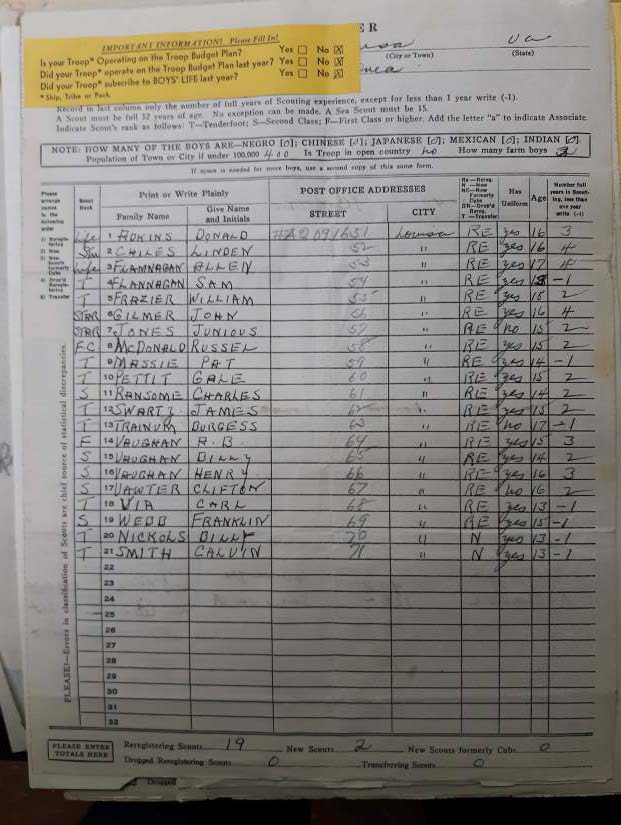 ER
IMPORTANT INFORMATION! Please Fill In!
Is your Troop* Operating on the Troop Budget Plan? Yes ☐ No ☒
Did your Troop* operate on the Troop Budget Plan last year? Yes ☐ No ☒
Did your Troop* subscribe to BOYS' LIFE last year? Yes ☐ No ☒
* Ship, Tribe or Pack.
Va
(City or Town) (State)
Record in last column only the number of full years of Scouting experience, except for less than 1 year write (-1).
A Scout must be full 12 years of age. No exception can be made. A Sea Scout must be 15.
Indicate Scout's rank as follows: T—Tenderfoot; S—Second Class; F—First Class or higher. Add the letter "a" to indicate Associate.
NOTE: HOW MANY OF THE BOYS ARE—NEGRO [0]; CHINESE [0]; JAPANESE [0]; MEXICAN [0]; INDIAN [0].
Population of Town or City if under 100,000 400 Is Troop in open country no How many farm boys
If space is needed for more boys, use a second copy of this same form.
Print or Write Plainly POST OFFICE ADDRESSES
Scout Rank Family Name Give Name and Initials STREET CITY Has Uniform Age Number full years in Scouting, less than one year write (-1)
Life 1 ADKINS DONALD #A2091651 Louisa RE yes 16 3
2 CHILES LINDEN 52 " RE yes 16 4
Life 3 FLANNAGAN ALLEN 53 " RE yes 17 4
T 4 FLANNAGAN SAM 54 " RE yes -1
T 5 FRAZIER WILLIAM 55 " RE yes 15 2
STAR 6 GILMER JOHN 56 " RE yes 16 4
STAR 7 JONES JUNIOUS 57 " RE no 15 2
FC 8 McDONALD RUSSEL 58 " RE yes 15 2
T 9 MASSIE PAT 59 " RE yes 14 -1
T 10 PETTIT GALE 60 " RE yes 15 2
S 11 RANSOME CHARLES 61 " RE yes 14 2
T 12 SWARTZ JAMES 62 " RE yes 15 2
T 13 TRAINUM BURGESS 63 " RE no 17 -1
F 14 VAUGHAN R.B. 64 " RE yes 15 3
S 15 VAUGHAN BILLY 65 " RE yes 14 2
S 16 VAUGHAN HENRY 66 " RE yes 16 3
S 17 VAWTER CLIFTON 67 " RE no 16 2
T 18 VIA CARL 68 " RE yes 13 -1
S 19 WEBB FRANKLIN 69 " RE yes 15 -1
T 20 NICKOLS BILLY 70 " N yes 13 -1
T 21 SMITH CALVIN 71 " N yes 13 -1
22
23
24
25
26
27
28
29
30
31
32
PLEASE!—Errors in classification of Scouts are chief source of statistical discrepancies.
PLEASE ENTER TOTALS HERE
Reregistering Scouts 19 New Scouts 2 New Scouts formerly Cubs 0
Dropped Reregistering Scouts 0 Transferring Scouts 0
Dropped